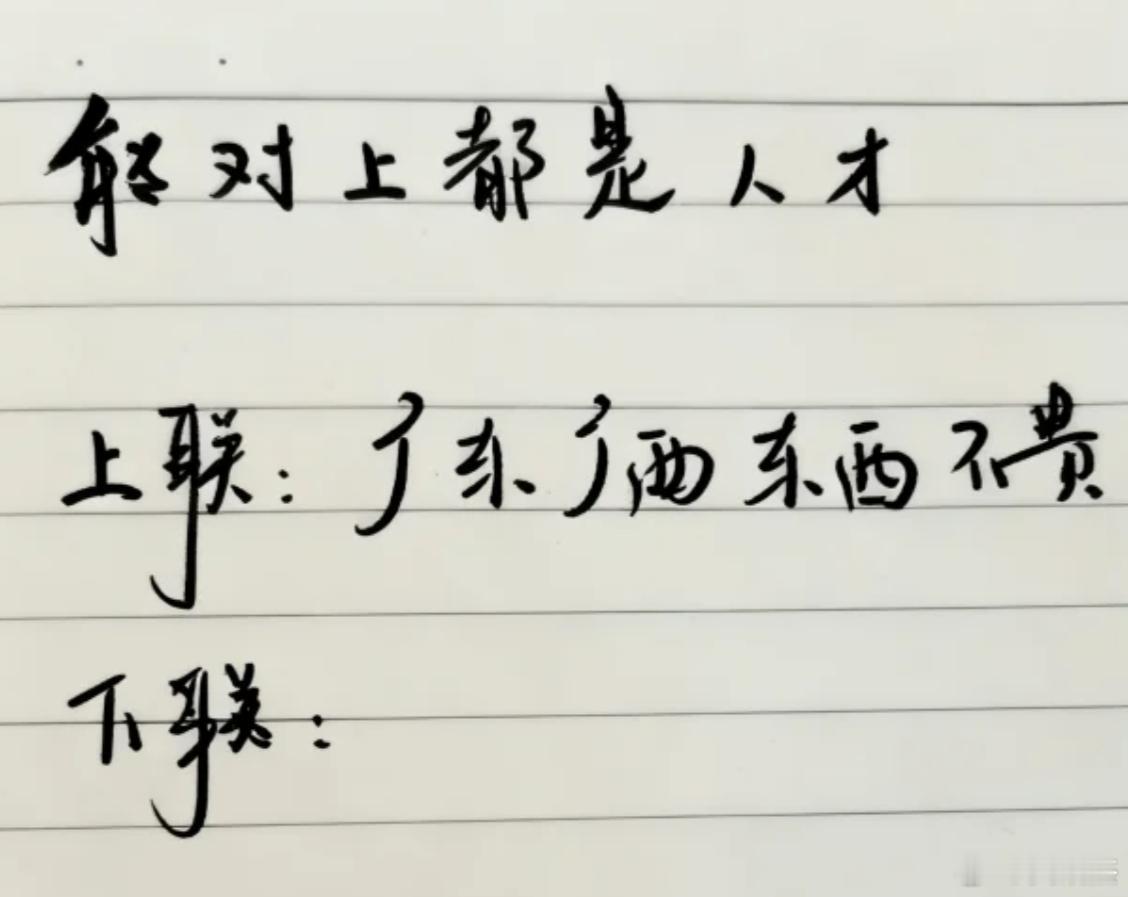 能对上都是人才
上联：广东广西东西不贵
下联：